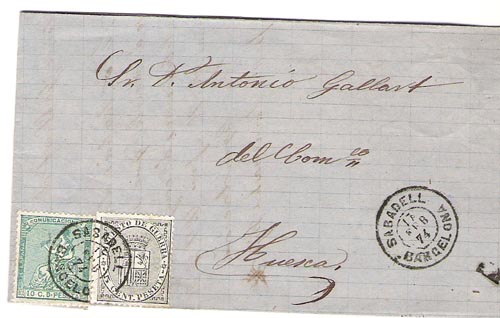 Sr. Dn. Antonio Gallart
del Comco
Huesca
SABADELL
17
FEB
74
BARCELONA
COMUNICACIONES
10 C. DE PESETA
SABADELL
BARCELONA
IMPUESTO DE GUERRA
5 CENT. PESETA